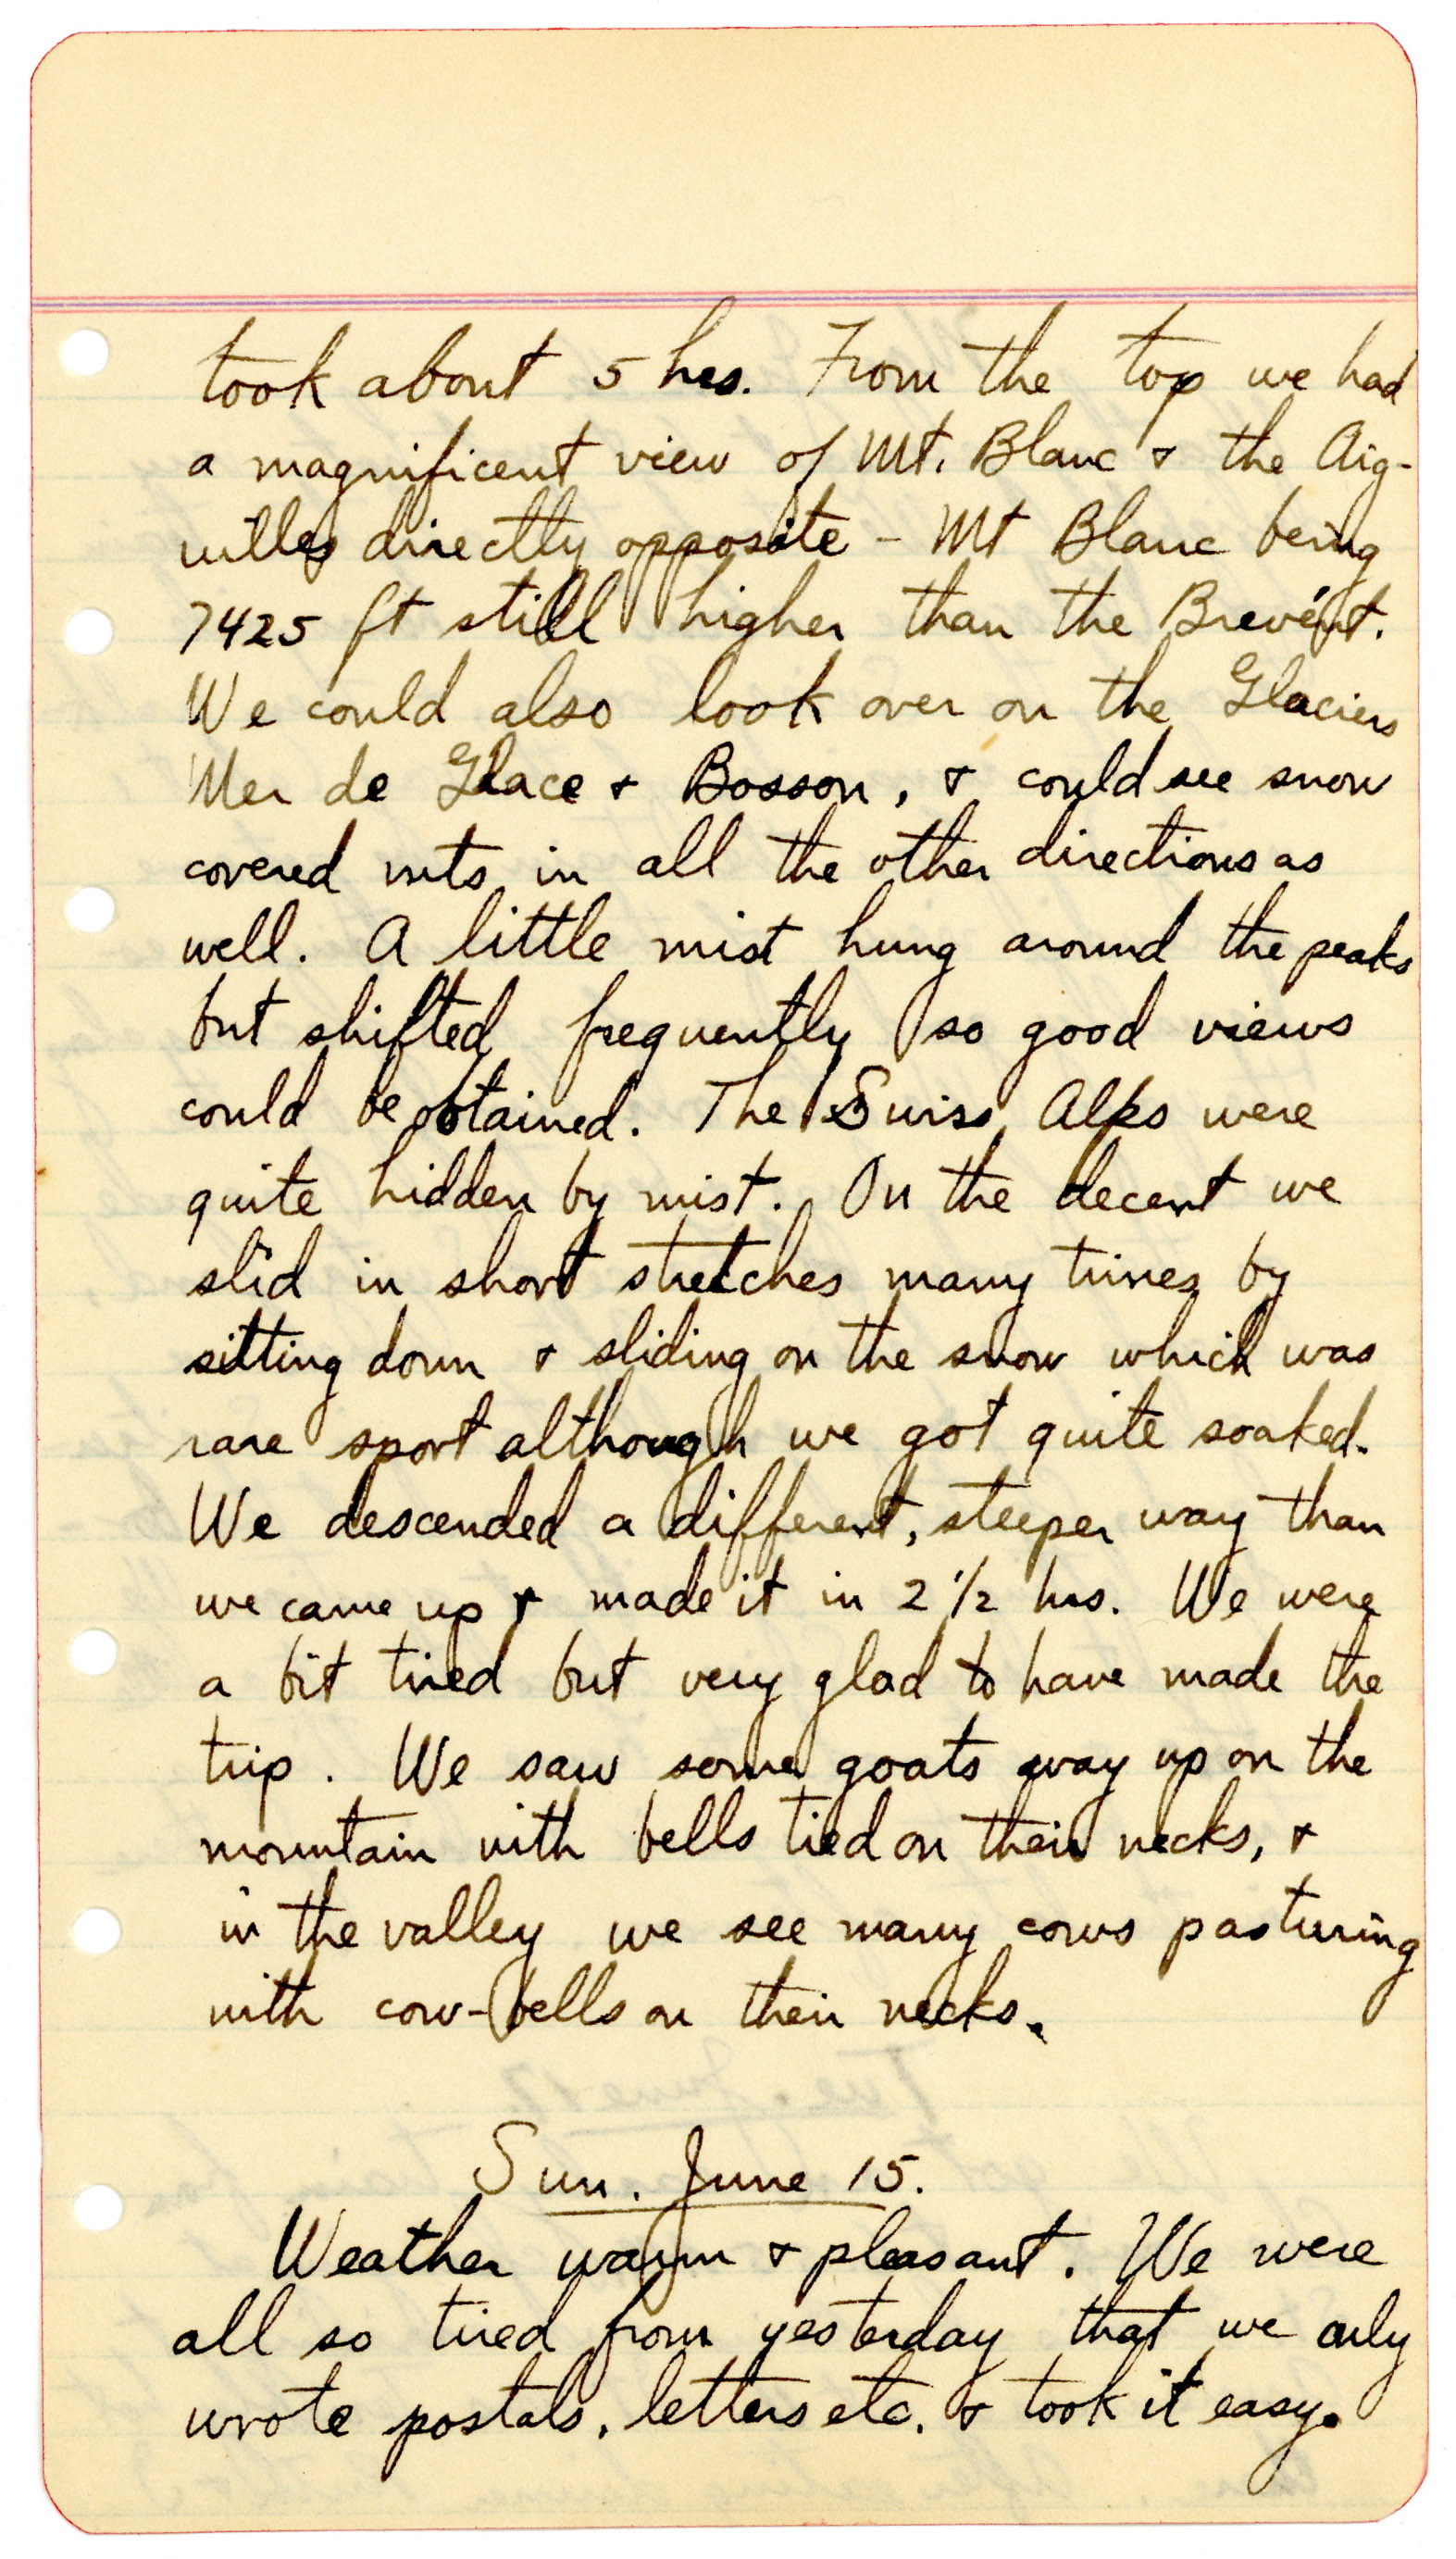 took about 5 hrs. From the top we had
a magnificent view of Mt. Blanc & the Aig-
uilles directly opposite - Mt Blanc being
7425 ft still higher than the Brevént.
We could also look over on the Glaciers
Mer de Glace & Bosson, & could see snow
covered mts in all the other directions as
well. A little mist hung around the peaks
but shifted frequently so good views
could be obtained. The Swiss Alps were
quite hidden by mist. On the decent we
slid in short stretches many times by
sitting down & sliding on the snow which was
rare sport although we got quite soaked.
We descended a different, steeper way than
we came up & made it in 2 1/2 hrs. We were
a bit tired but very glad to have made the
trip. We saw some goats way up on the
mountain with bells tied on their necks, &
in the valley we see many cows pasturing
with cow-bells on their necks.
Sun. June 15.
Weather warm & pleasant. We were
all so tired from yesterday that we only
wrote postals, letters etc. & took it easy.